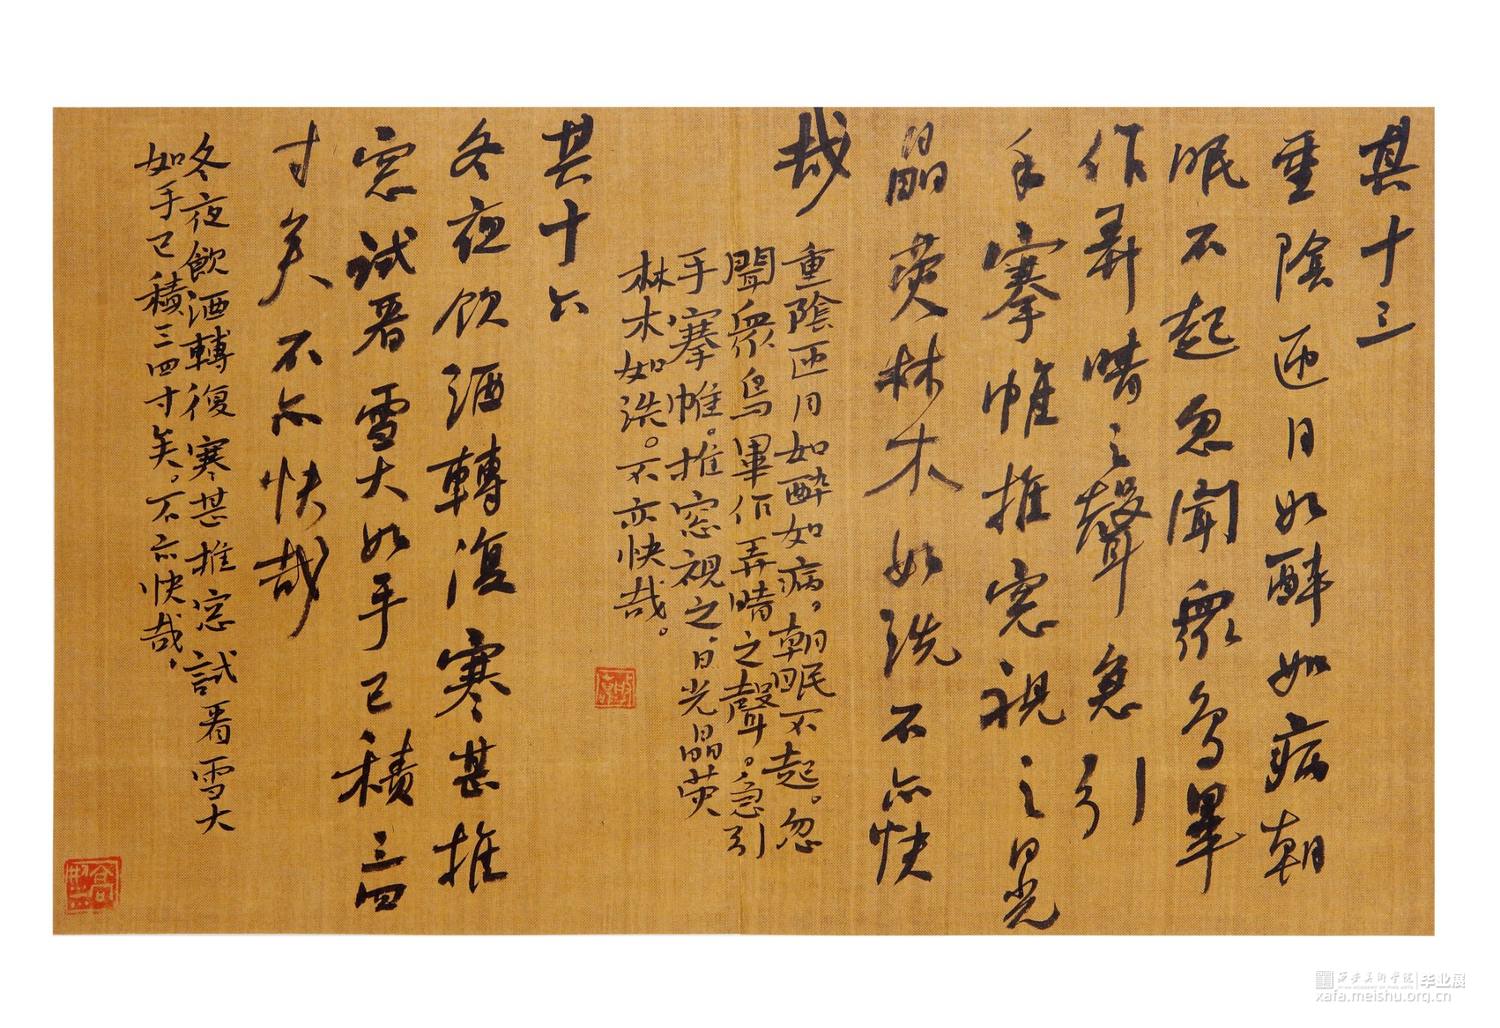 其十三
重陰匝月如醉如病朝
眠不起忽聞眾鳥畢
作弄晴之聲急引
手搴帷推窓視之日光
晶熒林木如洗不亦快
哉
重陰匝月如醉如病，朝眠不起。忽
聞眾鳥畢作弄晴之聲。急引
手搴帷。推窓視之，日光晶熒
林木如洗。不亦快哉。
其十六
冬夜飲酒轉復寒甚推
窓試看雪大如手已積三四
寸矣不亦快哉
冬夜飲酒轉復寒甚推窓試看雪大
如手已積三四寸矣。不亦快哉，
西安美术学院 毕业展
xafa.meishu.org.cn